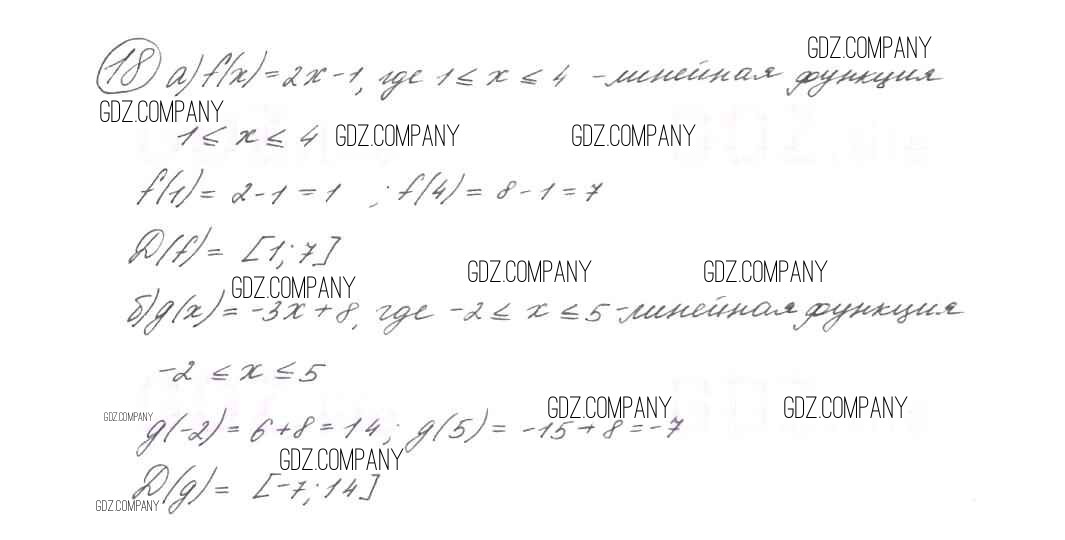 GDZ.COMPANY
18 а) f(x) = 2x - 1, где 1 ≤ x ≤ 4 - линейная функция
GDZ.COMPANY
1 ≤ x ≤ 4 GDZ.COMPANY GDZ.COMPANY
f(1) = 2 - 1 = 1 ; f(4) = 8 - 1 = 7
D(f) = [1; 7]
GDZ.COMPANY GDZ.COMPANY
GDZ.COMPANY
б) g(x) = -3x + 8, где -2 ≤ x ≤ 5 - линейная функция
-2 ≤ x ≤ 5
GDZ.COMPANY GDZ.COMPANY GDZ.COMPANY
g(-2) = 6 + 8 = 14; g(5) = -15 + 8 = -7
GDZ.COMPANY
D(g) = [-7; 14]
GDZ.COMPANY